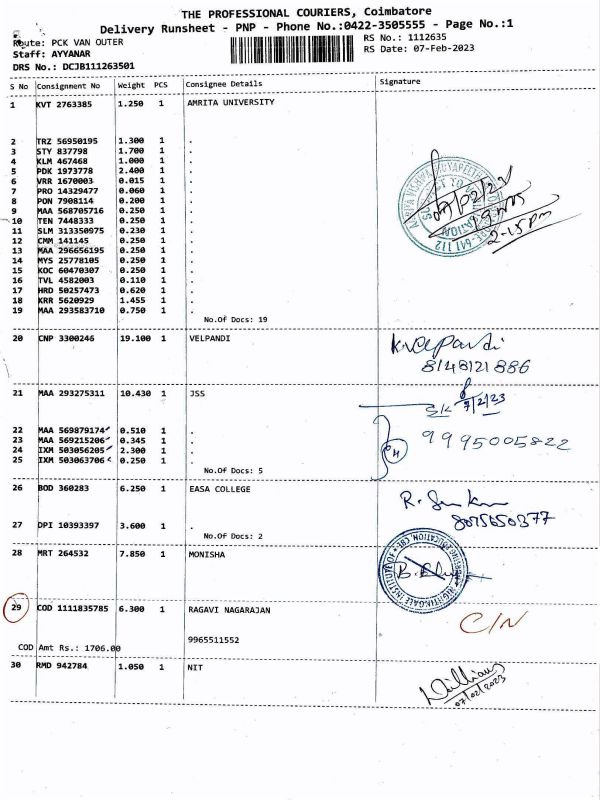 THE PROFESSIONAL COURIERS, Coimbatore
Delivery Runsheet - PNP - Phone No.:0422-3505555 - Page No.:1
Route: PCK VAN OUTER
RS No.: 1112635
Staff: AYYANAR
RS Date: 07-Feb-2023
DRS No.: DCJB111263501
S No Consignment No Weight PCS Consignee Details Signature
1 KVT 2763385 1.250 1 AMRITA UNIVERSITY
2 TRZ 56950195 1.300 1 .
3 STY 837798 1.700 1 .
4 KLM 467468 1.000 1 .
5 PDK 1973778 2.400 1 .
6 VRR 1670003 0.015 1 .
7 PRO 14329477 0.060 1 .
8 PON 7908114 0.200 1 .
9 MAA 568705716 0.250 1 .
10 TEN 7448333 0.250 1 .
11 SLM 313350975 0.230 1 .
12 CMM 141145 0.250 1 .
13 MAA 296656195 0.250 1 .
14 MYS 25778105 0.250 1 .
15 KOC 60470307 0.250 1 .
16 TVL 4582003 0.110 1 .
17 HRD 50257473 0.620 1 .
18 KRR 5620929 1.455 1 .
19 MAA 293583710 0.750 1 .
No.Of Docs: 19
07/02/23
19 nos
2-15pm
641 112
20 CNP 3300246 19.100 1 VELPANDI
K.velpandi
8148121886
21 MAA 293275311 10.430 1 JSS
7/2/23
22 MAA 569879174 0.510 1 .
23 MAA 569215206 0.345 1 .
24 IXM 503056205 2.300 1 .
25 IXM 503063706 0.250 1 .
No.Of Docs: 5
9995005822
26 BOD 360283 6.250 1 EASA COLLEGE
27 DPI 10393397 3.600 1 .
No.Of Docs: 2
28 MRT 264532 7.850 1 MONISHA
29 COD 1111835785 6.300 1 RAGAVI NAGARAJAN
9965511552
COD Amt Rs.: 1706.00
C/N
30 RMD 942784 1.050 1 NIT
07/02/2023